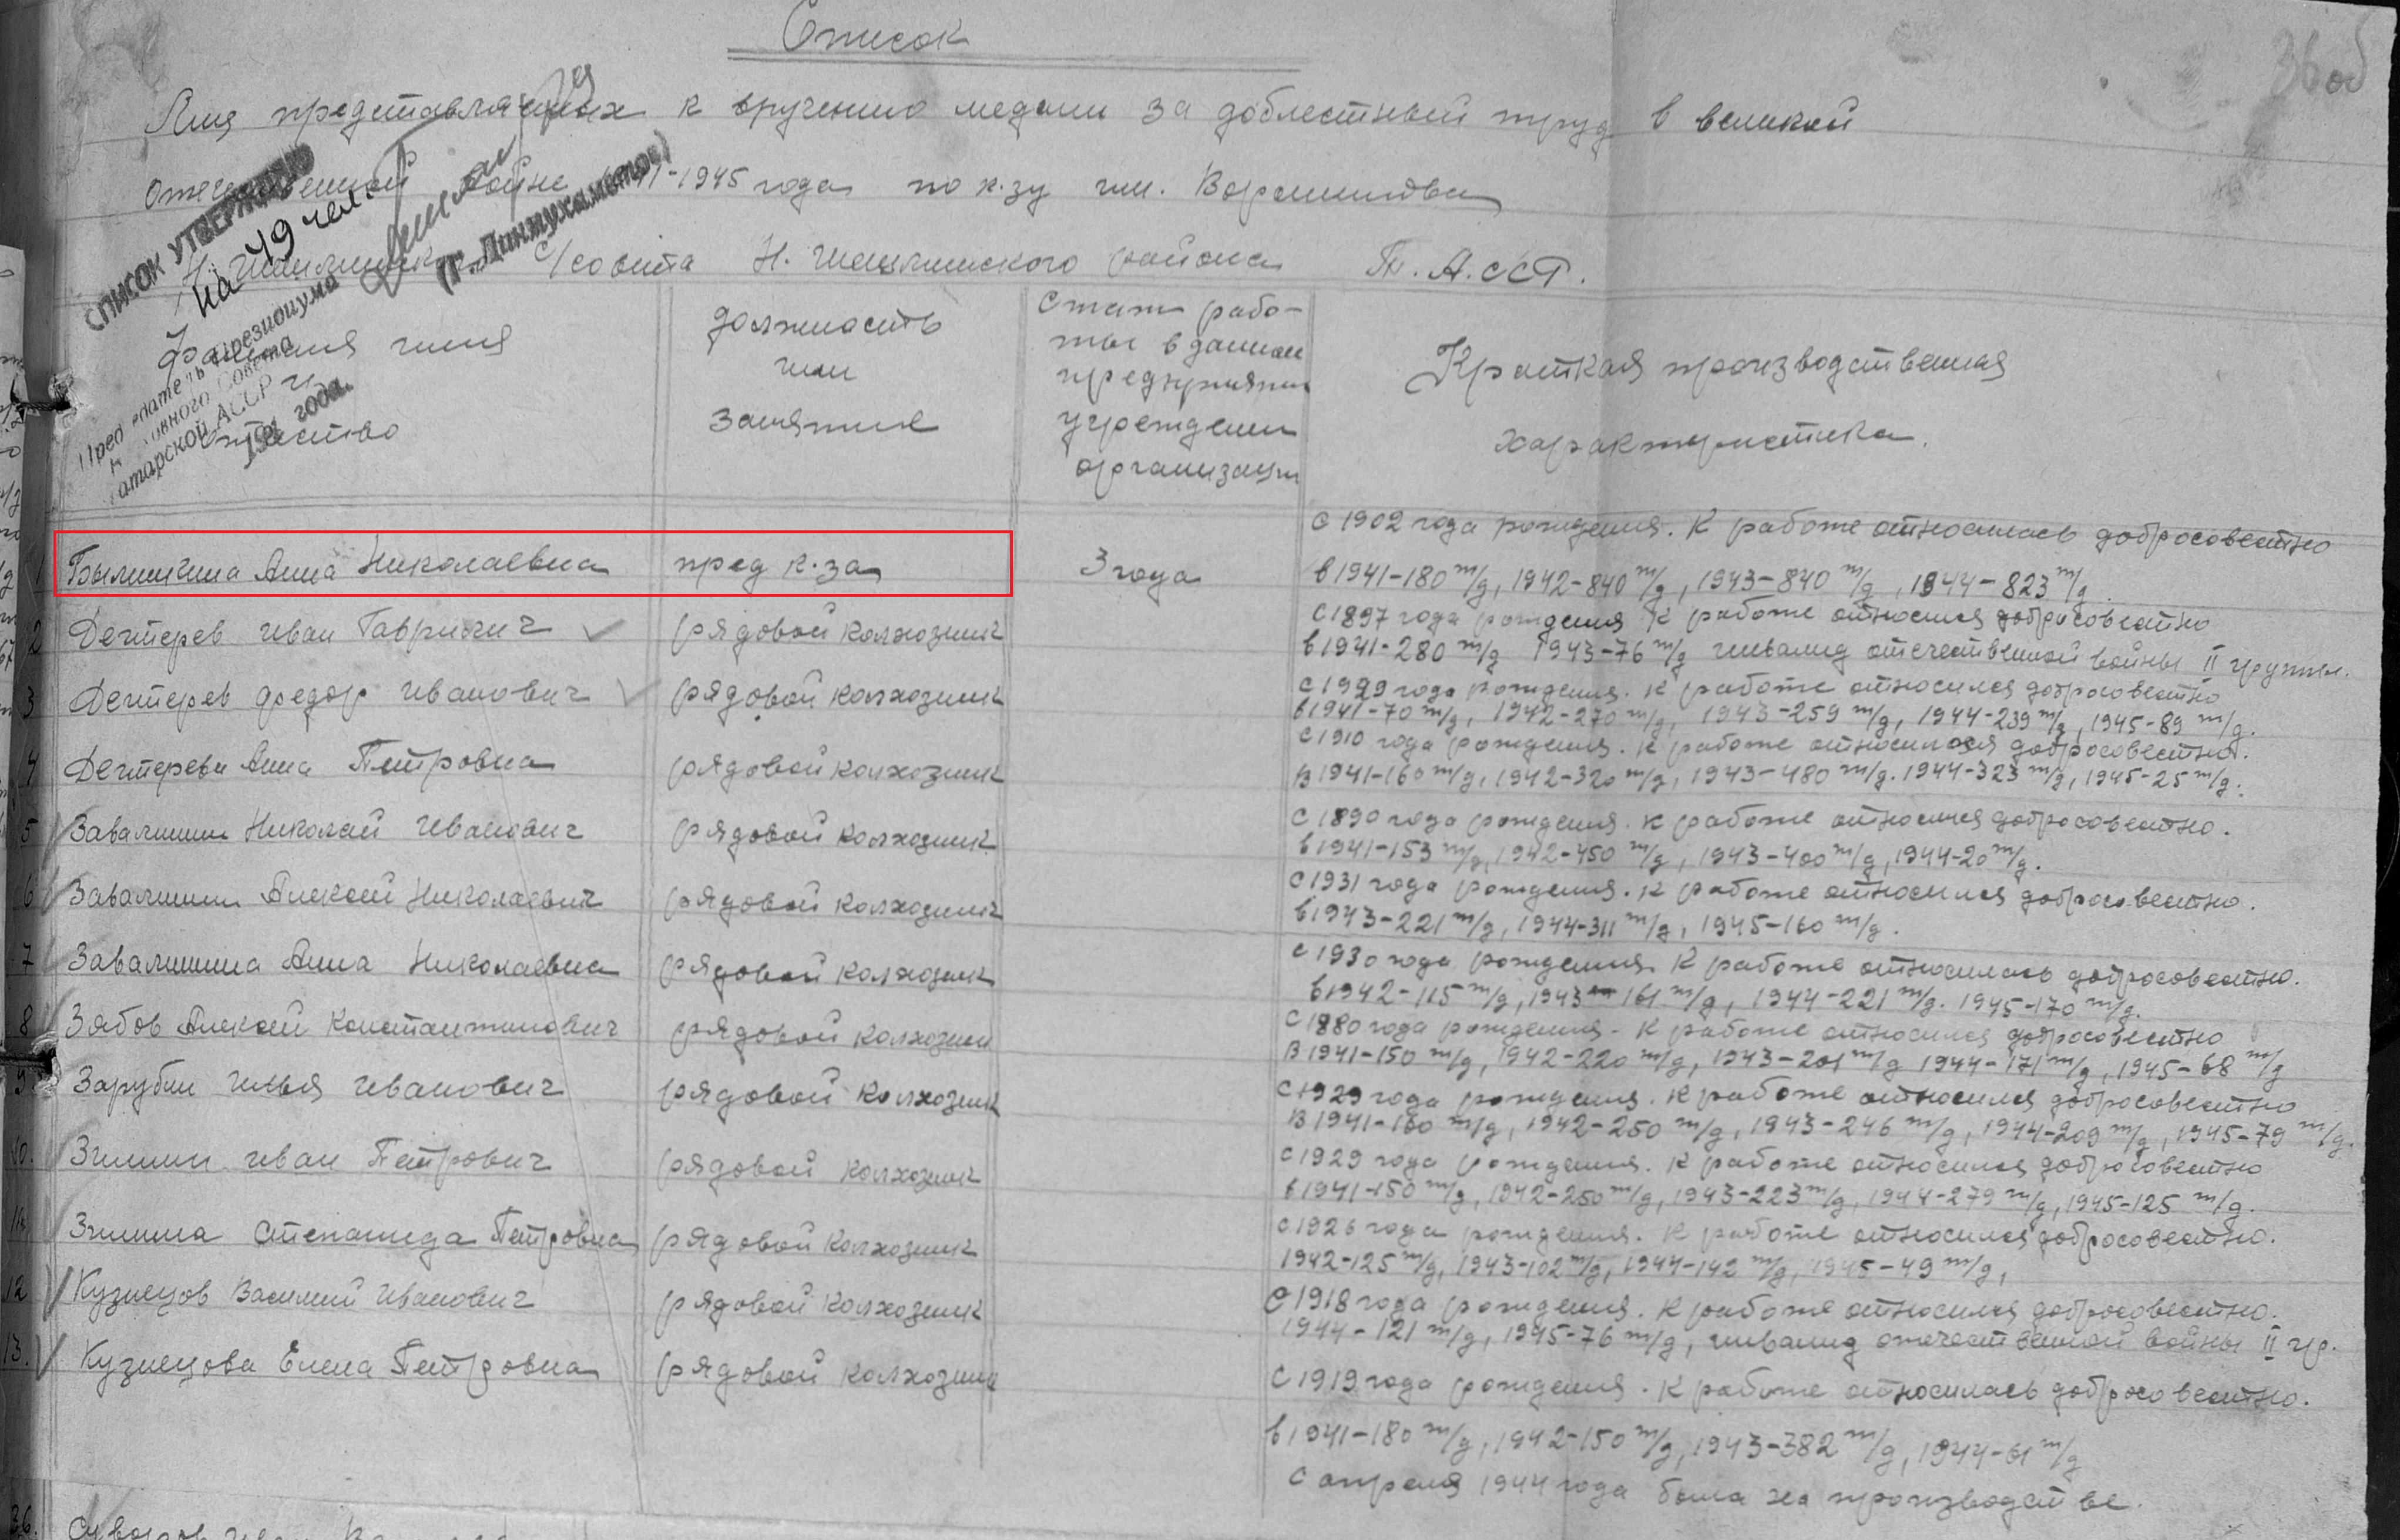 36 об
Список
Лиц представляемых к вручению медали за доблестный труд в великой
Отечественной войне 1941-1945 года по к.зу им. Ворошилова
Н. Шешминского с/совета Н. Шешминского района Т. А. ССР.
СПИСОК УТВЕРЖДАЮ
на 49 чел.
Председатель Президиума
Верховного Совета
Татарской АССР
194 года.
(Г. Динмухаметов)
Фамилия имя
отчество
должность
или
занятие
Стаж рабо-
ты в данном
предприятии
учреждении
организации
Краткая производственная
характеристика.
с 1902 года рождения. К работе относилась добросовестно
1 Былинкина Анна Николаевна пред к-за 3 года в 1941-180 т/д, 1942-840 т/д, 1943-840 т/д, 1944-823 т/д.
с 1897 года рождения К работе относился добросовестно
2 Дегтерев Иван Гаврилич рядовой колхозник в 1941-280 т/д 1943-76 т/д инвалид отечественной войны II группы.
с 1929 года рождения. К работе относился добросовестно
3 Дегтерев Федор Иванович рядовой колхозник в 1941-70 т/д, 1942-270 т/д, 1943-259 т/д, 1944-239 т/д, 1945-89 т/д.
с 1910 года рождения. К работе относилася добросовестно.
4 Дегтерева Анна Петровна рядовой колхозник В 1941-160 т/д, 1942-320 т/д, 1943-480 т/д. 1944-323 т/д, 1945-25 т/д.
с 1890 года рождения. К работе относился добросовестно.
5 Завалишин Николай Иванович рядовой колхозник в 1941-153 т/д, 1942-450 т/д, 1943-400 т/д, 1944-20 т/д.
с 1931 года рождения. К работе относился добросовестно.
6 Завалишин Алексей Николаевич рядовой колхозник в 1943-221 т/д, 1944-311 т/д, 1945-160 т/д.
с 1930 года рождения К работе относилась добросовестно.
7 Завалишина Анна Николаевна рядовой колхозник в 1942-115 т/д, 1943-161 т/д, 1944-221 т/д. 1945-170 т/д.
с 1880 года рождения - К работе относился добросовестно
8 Зябов Алексей Константинович рядовой колхозник В 1941-150 т/д, 1942-220 т/д, 1943-201 т/д 1944-171 т/д, 1945-68 т/д
с 1929 года рождения. К работе относился добросовестно
9 Зарубин Илья Иванович рядовой колхозник В 1941-160 т/д, 1942-250 т/д, 1943-246 т/д, 1944-209 т/д, 1945-79 т/д.
с 1929 года рождения. К работе относился добросовестно
10. Зимин Иван Петрович рядовой колхозник в 1941-150 т/д, 1942-250 т/д, 1943-223 т/д, 1944-279 т/д, 1945-125 т/д.
с 1926 года рождения. К работе относился добросовестно.
11 Зимина Степанида Петровна рядовой колхозник 1942-125 т/д, 1943-102 т/д, 1944-142 т/д, 1945-49 т/д,
с 1918 года рождения. К работе относился добросовестно.
12 Кузнецов Василий Иванович рядовой колхозник 1944-121 т/д, 1945-76 т/д, инвалид отечественной войны II гр.
13. Кузнецова Елена Петровна рядовой колхозник с 1919 года рождения. К работе относилась добросовестно.
в 1941-180 т/д, 1942-150 т/д, 1943-382 т/д, 1944-61 т/д
с апреля 1944 года была на производстве.
26. Суворов Иван